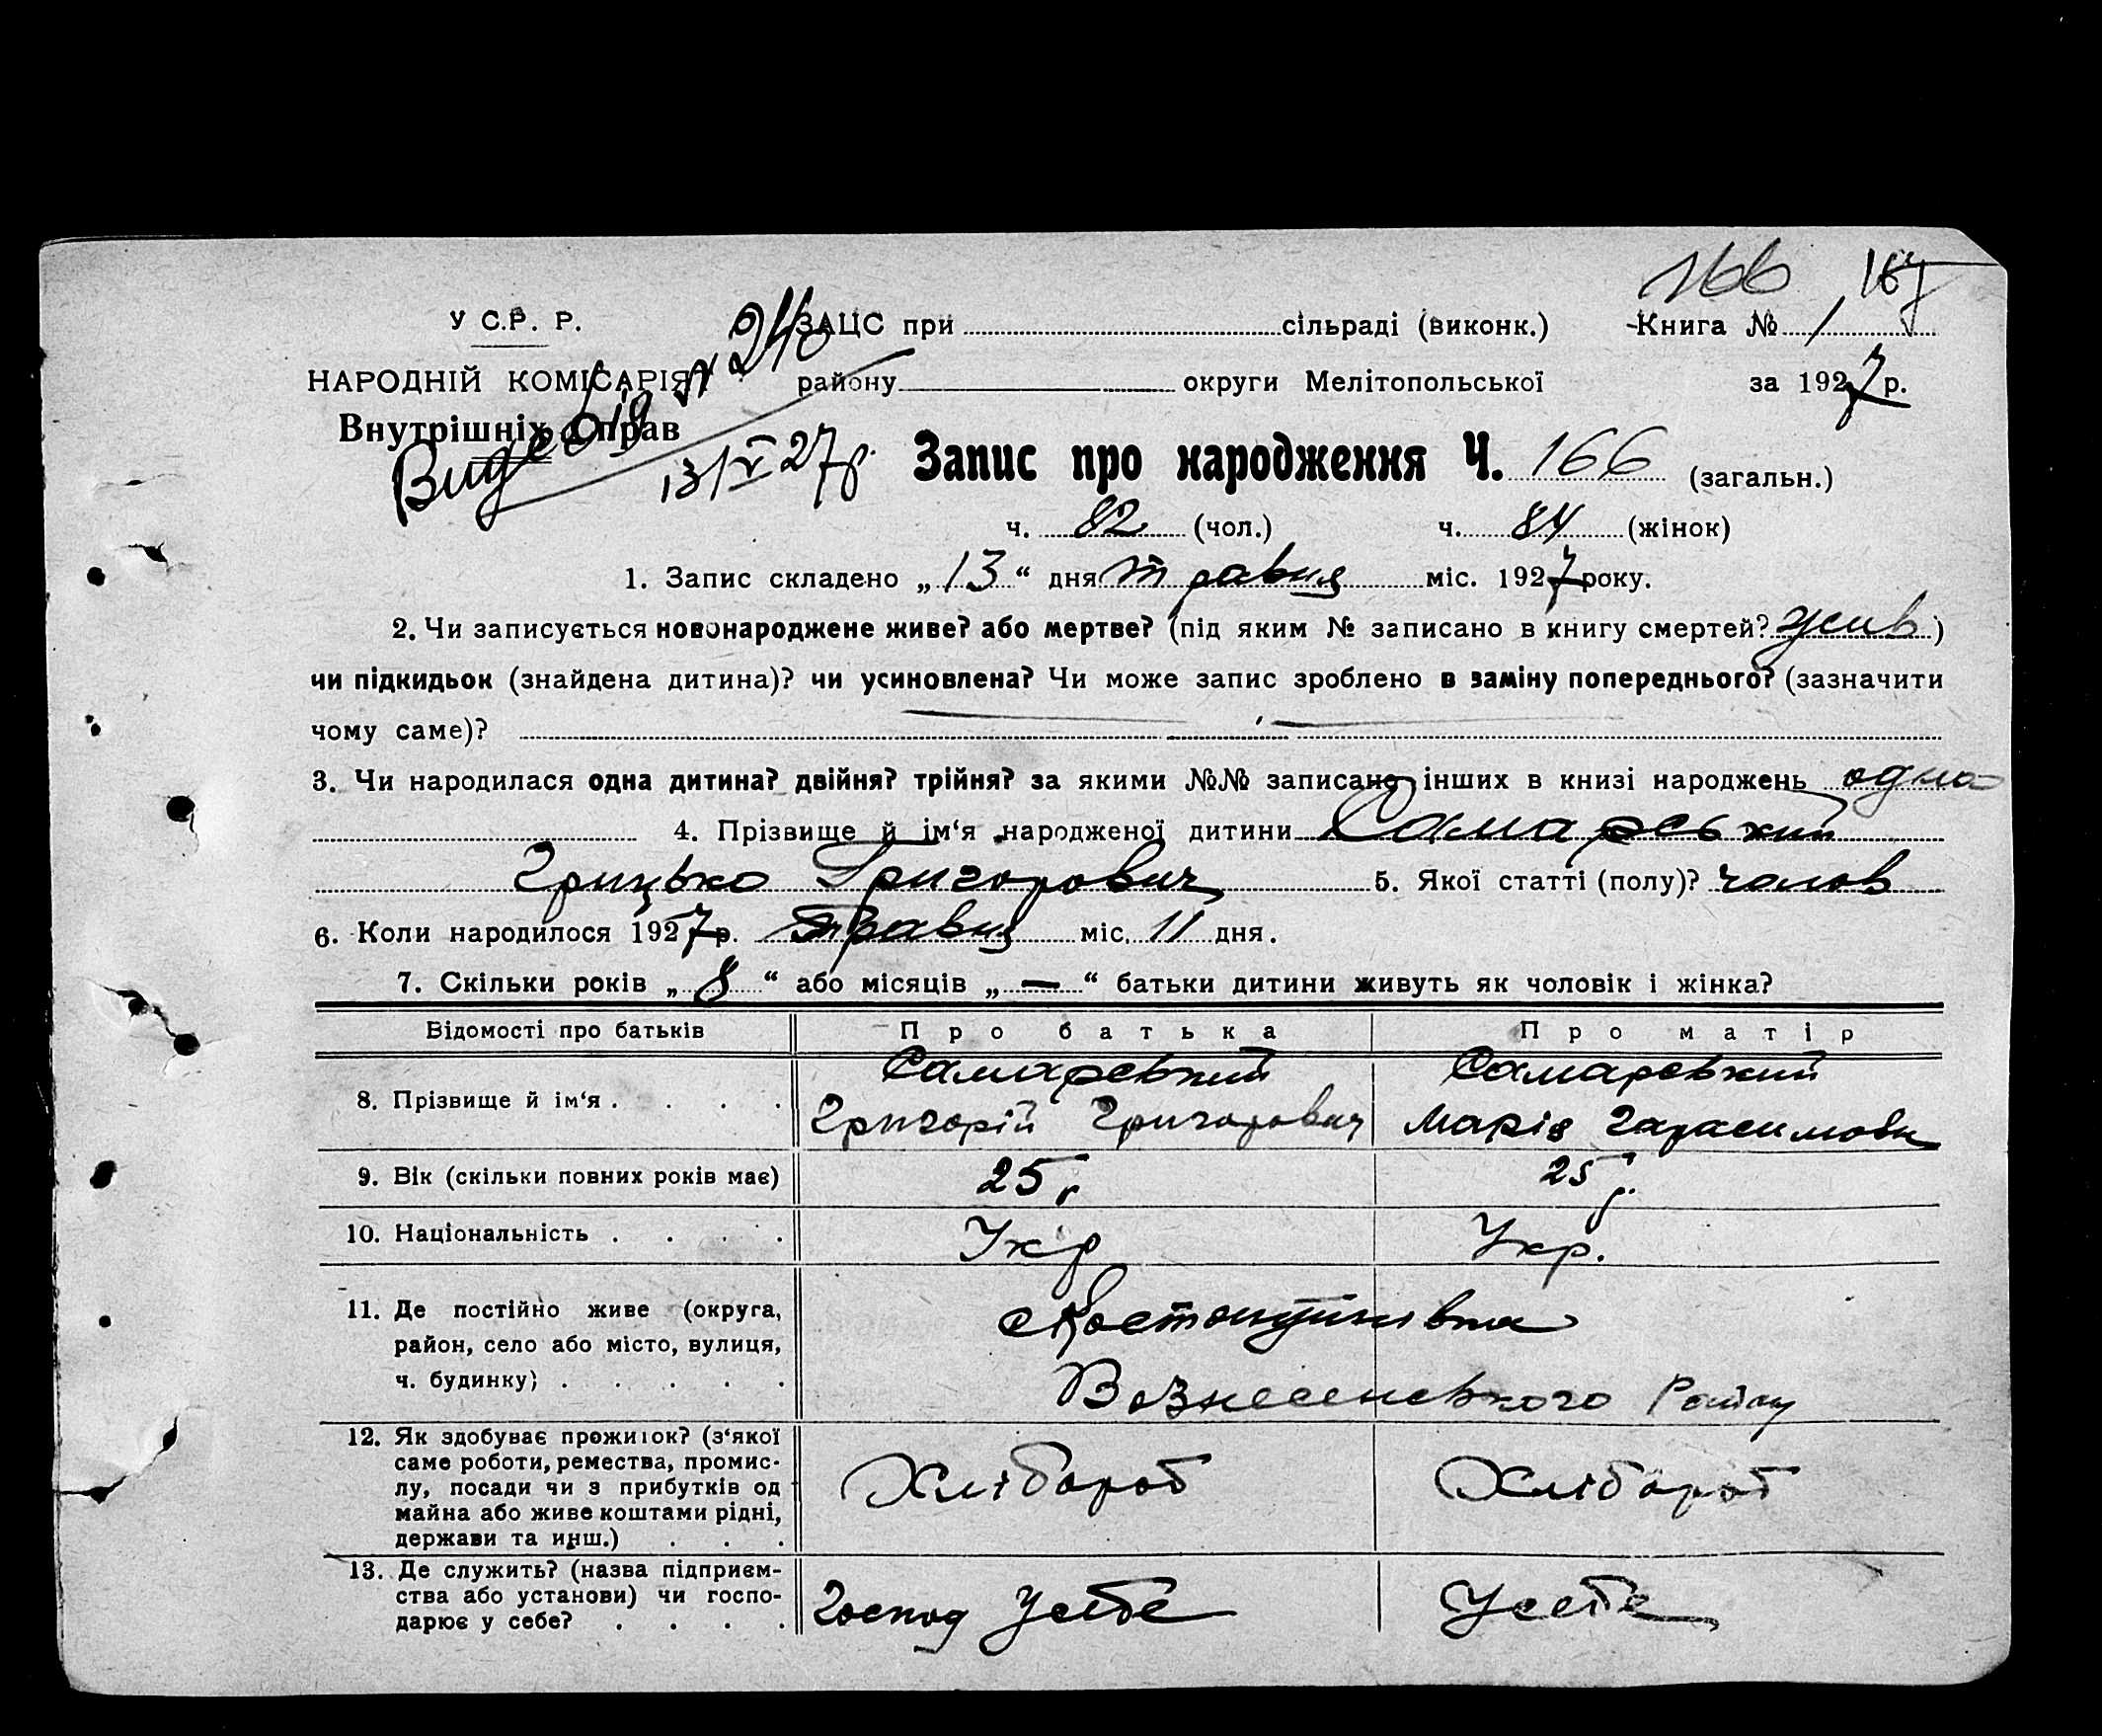 166 167
У С.Р. Р. ЗАЦС при сільраді (виконк.) Книга № 1
НАРОДНІЙ КОМІСАРІЯТ району округи Мелітопольської за 1927 р.
Внутрішніх Справ
13/V 27 р.
Запис про народження Ч. 166 (загальн.)
ч. 82 (чол.) ч. 84 (жінок)
1. Запис складено „13“ дня травня міс. 1927 року.
2. Чи записується новонароджене живе? або мертве? (під яким № записано в книгу смертей?)
чи підкидьок (знайдена дитина)? чи усиновлена? Чи може запис зроблено в заміну попереднього? (зазначити
чому саме)?
3. Чи народилася одна дитина? двійня? трійня? за якими №№ записано інших в книзі народжень одна
4. Прізвище й ім‘я народженої дитини Самарський
Грицько Григорович 5. Якої статті (полу)? чолов
6. Коли народилося 1927 р. травня міс. 11 дня.
7. Скільки років „8“ або місяців „—“ батьки дитини живуть як чоловік і жінка?
Відомості про батьків Про батька Про матір
Самарський Самарський
8. Прізвище й ім‘я . . . . Григорій Григорович Марія Гарасимовн
9. Вік (скільки повних років має) 25 р 25 р.
10. Національність . . . . Укр Укр.
11. Де постійно живе (округа, Костянтинівка
район, село або місто, вулиця,
ч. будинку) . . . . . Вознесенського Району
12. Як здобуває прожиток? (з‘якої
саме роботи, ремества, промис-
лу, посади чи з прибутків од Хлібороб Хлібороб
майна або живе коштами рідні,
держави та инш.) . . .
13. Де служить? (назва підприєм-
ства або установи) чи госпо- Господ Усебе Усебе
дарює у себе? . . . .